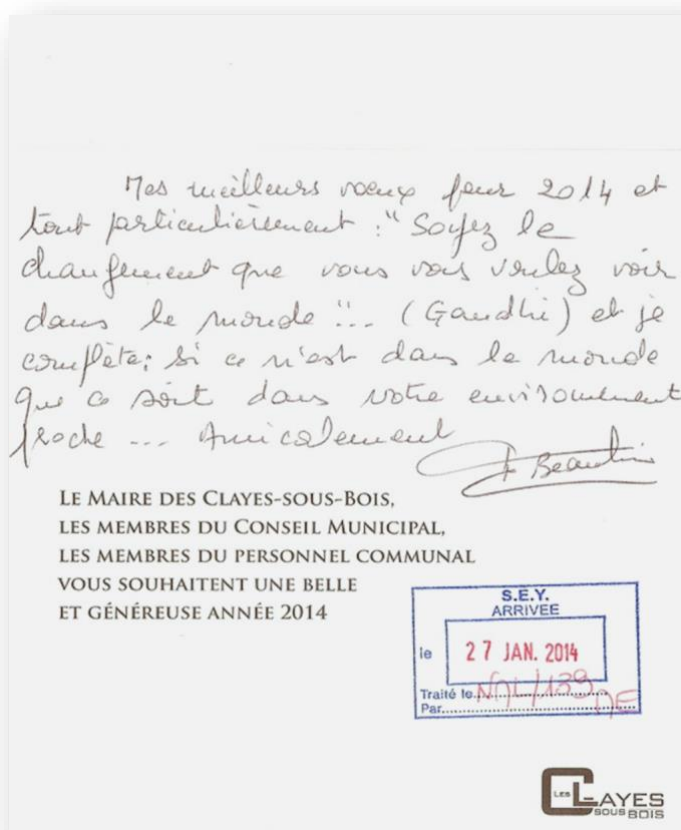 Mes meilleurs voeux pour 2014 et
tout particulièrement : "Soyez le
changement que vous vous voulez voir
dans le monde"... (Gandhi) et je
complète: si ce n'est dans le monde
que ce soit dans votre environnement
proche ... Amicalement
LE MAIRE DES CLAYES-SOUS-BOIS,
LES MEMBRES DU CONSEIL MUNICIPAL,
LES MEMBRES DU PERSONNEL COMMUNAL
VOUS SOUHAITENT UNE BELLE
ET GÉNÉREUSE ANNÉE 2014
S.E.Y.
ARRIVEE
le 27 JAN. 2014
Traité le
Par
LES CLAYES
SOUS BOIS